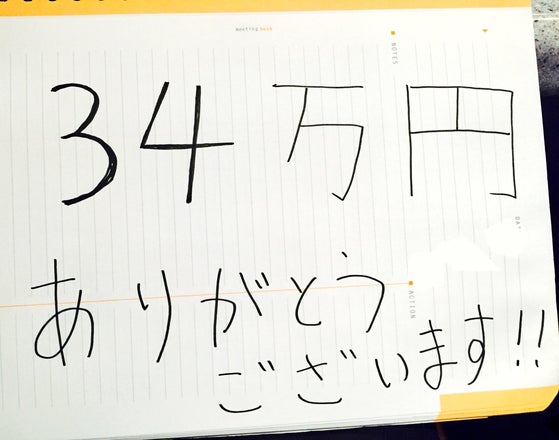 meeting book
NOTES
34万円
ACTION
ありがとう
ございます!!